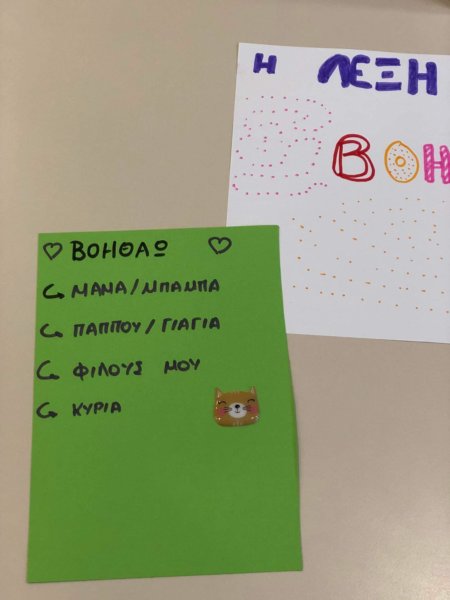 Η ΛΕΞΗ
ΒΟΗ
ΒΟΗΘΑΩ
ΜΑΜΑ/ΜΠΑΜΠΑ
ΠΑΠΠΟΥ/ΓΙΑΓΙΑ
ΦΙΛΟΥΣ ΜΟΥ
ΚΥΡΙΑ